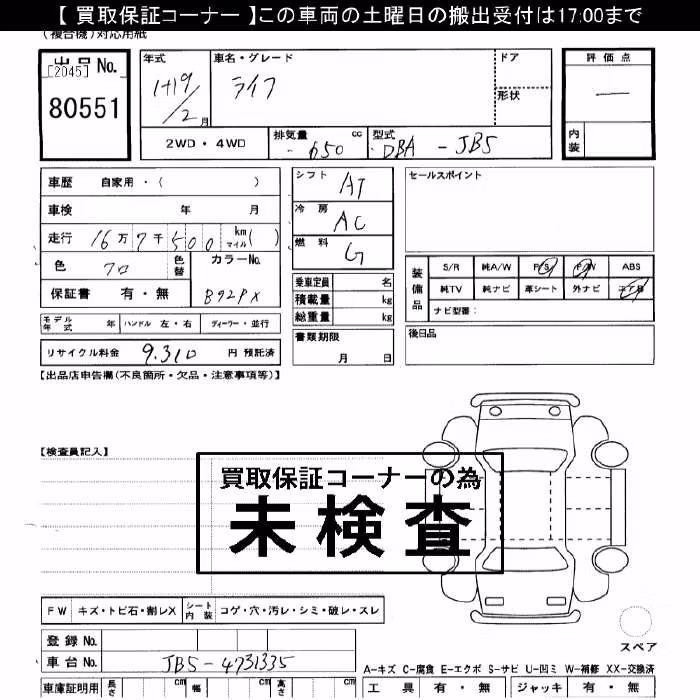 【 買取保証コーナー 】この車両の土曜日の搬出受付は17:00まで
(複合機)対応用紙
出品 No.
[2045]
80551
年式
H19/2月
車名・グレード
ライフ
ドア
形状
評価点
—
内装
2WD・4WD
排気量 650 cc
型式 DBA - JB5
車歴 自家用・( )
車検 年 月
走行 16万7千500 km マイル( )
色 クロ 色替
カラーNo. B92PX
保証書 有・無
シフト AT
冷房 AC
燃料 G
乗車定員 名
積載量 kg
総重量 kg
セールスポイント
装備品 S/R 純A/W P/S P/W ABS
純TV 純ナビ 革シート 外ナビ エアB
ナビ型番:
モデル年式 年 ハンドル 左・右 ディーラー・並行
リサイクル料金 9,310 円 預託済
書類期限
月 日
後日品
【出品店申告欄(不良箇所・欠品・注意事項等)】
【検査員記入】
買取保証コーナーの為
未検査
FW キズ・トビ石・割レX シート内装 コゲ・穴・汚レ・シミ・破レ・スレ
登録 No.
車台 No. JB5-4731335
スペア
A-キズ C-腐食 E-エクボ S-サビ U-凹ミ W-補修 XX-交換済
車庫証明用 長さ cm 幅 cm 高さ cm
工具 有・無 ジャッキ 有・無